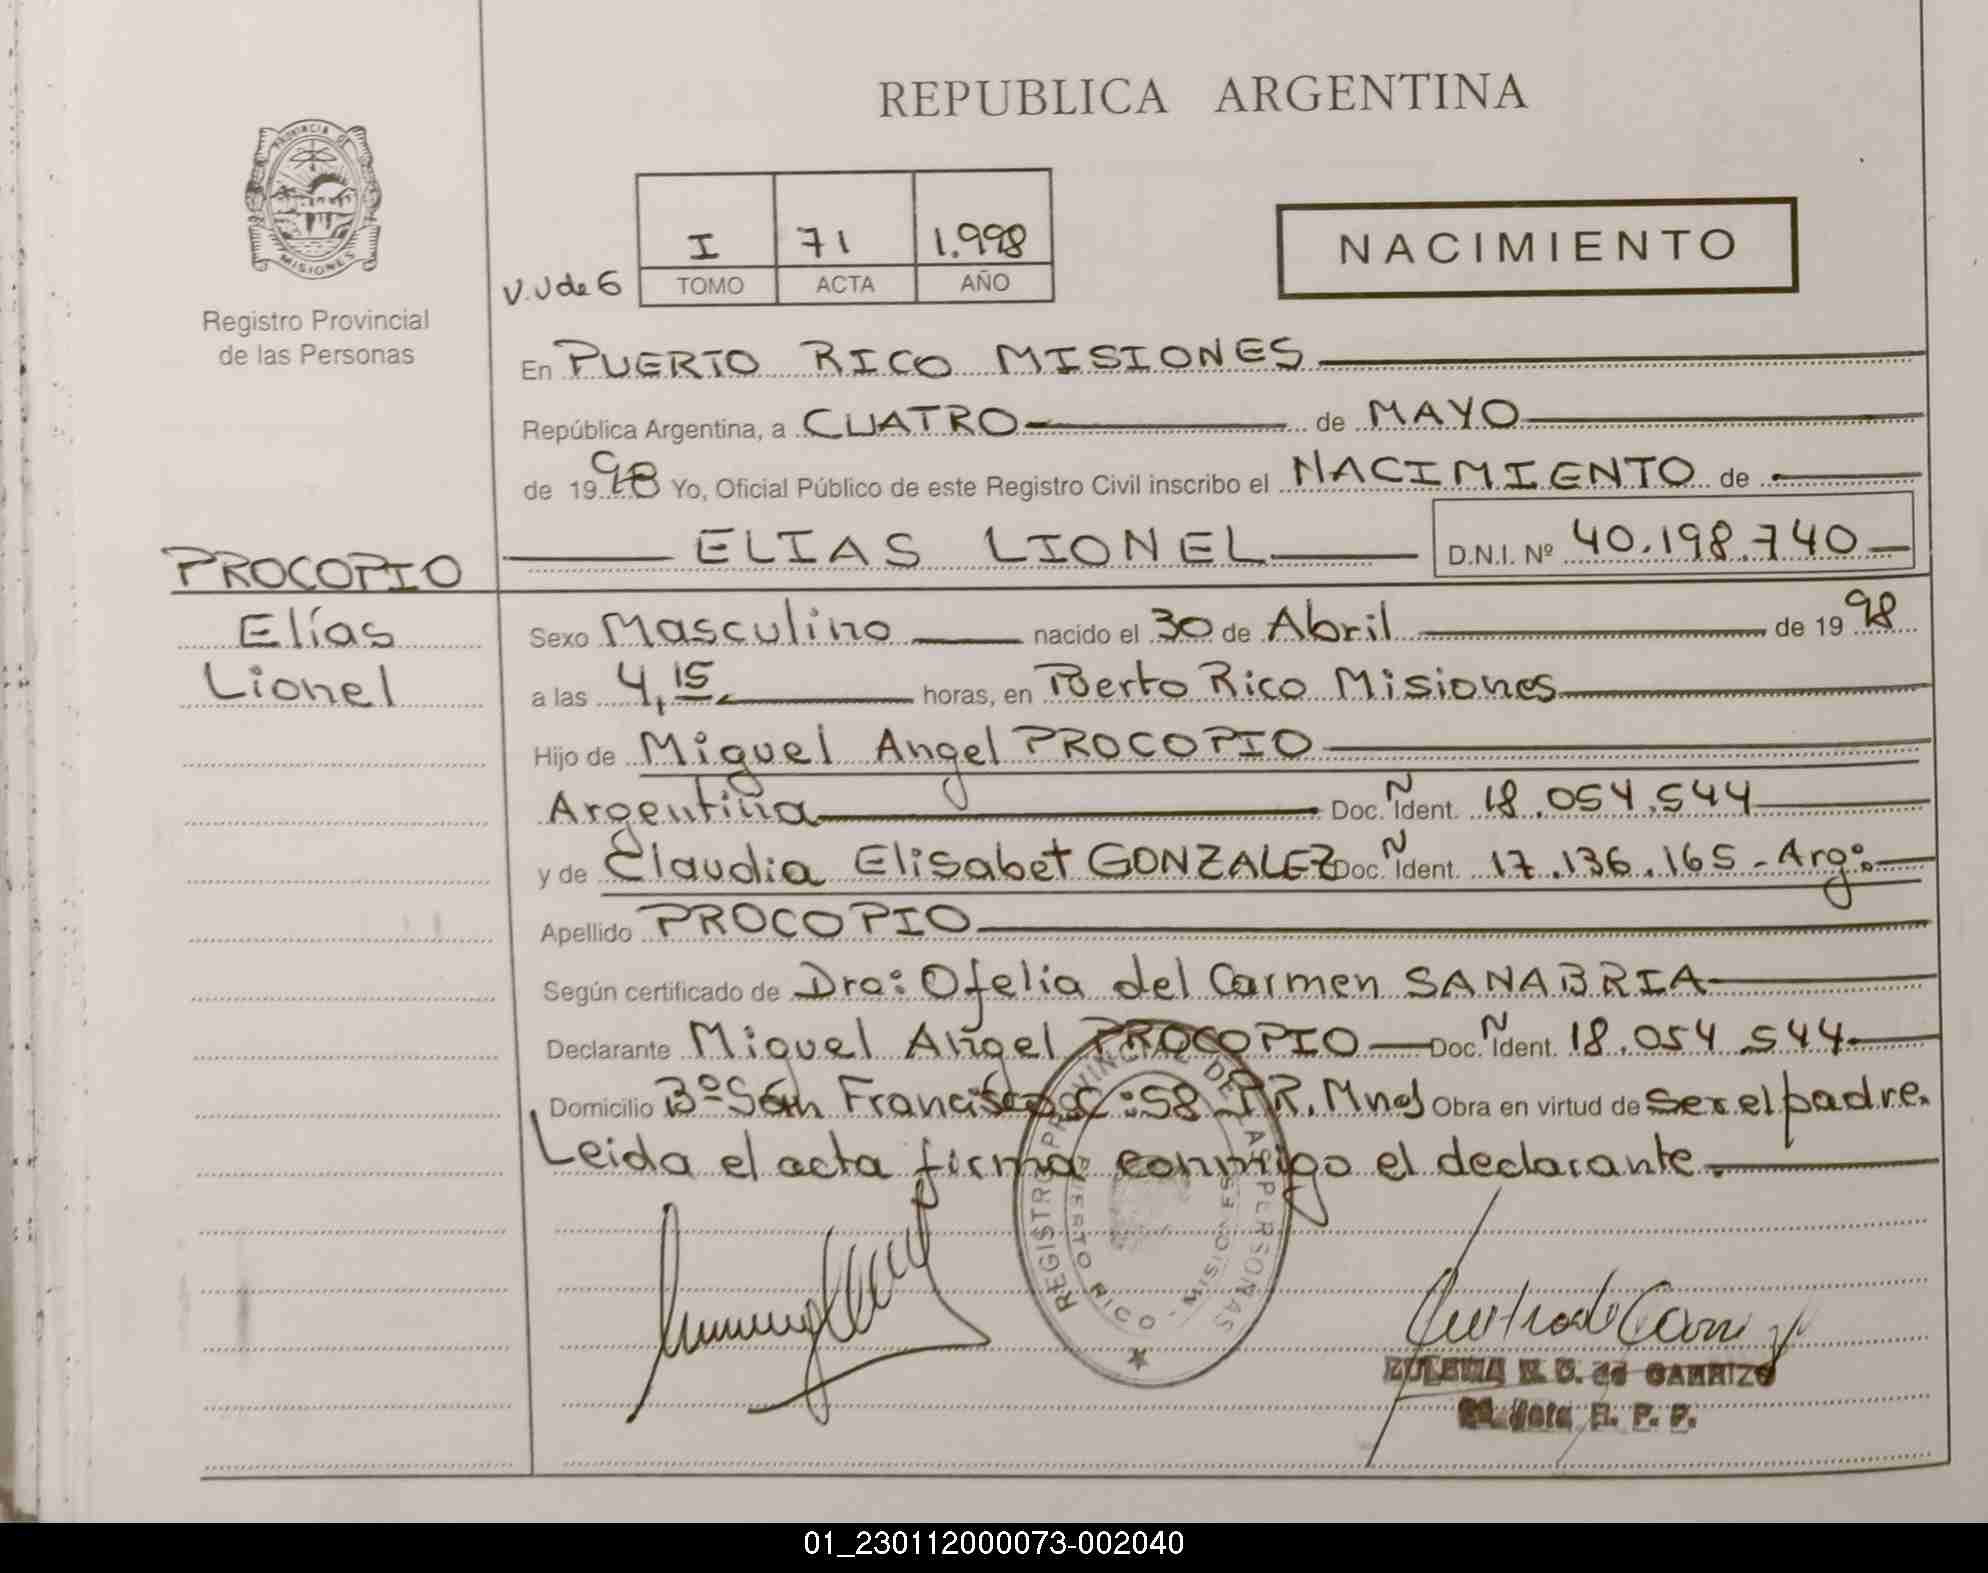 REPUBLICA ARGENTINA
PROVINCIA DE
MISIONES
Registro Provincial
de las Personas
I 71 1.998
V.U de 6 TOMO ACTA AÑO
NACIMIENTO
En PUERTO RICO MISIONES
República Argentina, a CUATRO de MAYO
de 1998 Yo, Oficial Público de este Registro Civil inscribo el NACIMIENTO de
ELIAS LIONEL D.N.I. Nº 40.198.740
PROCOPIO
Elías
Lionel
Sexo Masculino nacido el 30 de Abril de 1998
a las 4,15. horas, en Puerto Rico Misiones
Hijo de Miguel Angel PROCOPIO
Argentina Doc. Ñ Ident. 18.054.544
y de Claudia Elisabet GONZALEZ Doc. Ñ Ident. 17.136.165 - Argº.
Apellido PROCOPIO
Según certificado de Dra: Ofelia del Carmen SANABRIA
Declarante Miguel Angel PROCOPIO Doc. Ñ Ident. 18.054.544
Domicilio Bº San Francisco C:58 P.R. Mnes Obra en virtud de ser el padre.
Leida el acta firma conmigo el declarante.
REGISTRO PROVINCIAL DE LAS PERSONAS
PUERTO RICO - MISIONES
de CARRIZO
R. P. P.
01_230112000073-002040